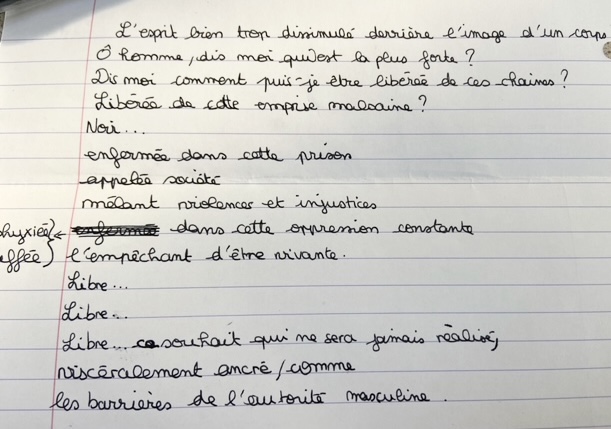 L'esprit bien trop dissimulé derrière l'image d'un corps
Ô homme, dis moi qu'est la plus forte ?
Dis moi comment puis-je être libérée de ces chaines ?
Libérée de cette emprise malsaine ?
Noir...
enfermée dans cette prison
appelée société
mêlant violences et injustices
hyxiée) ← enfermée dans cette oppression constante
ffée) l'empêchant d'être vivante.
Libre...
Libre...
Libre... ce souhait qui ne sera jamais réalisé,
viscéralement ancré / comme
les barrières de l'autorité masculine.